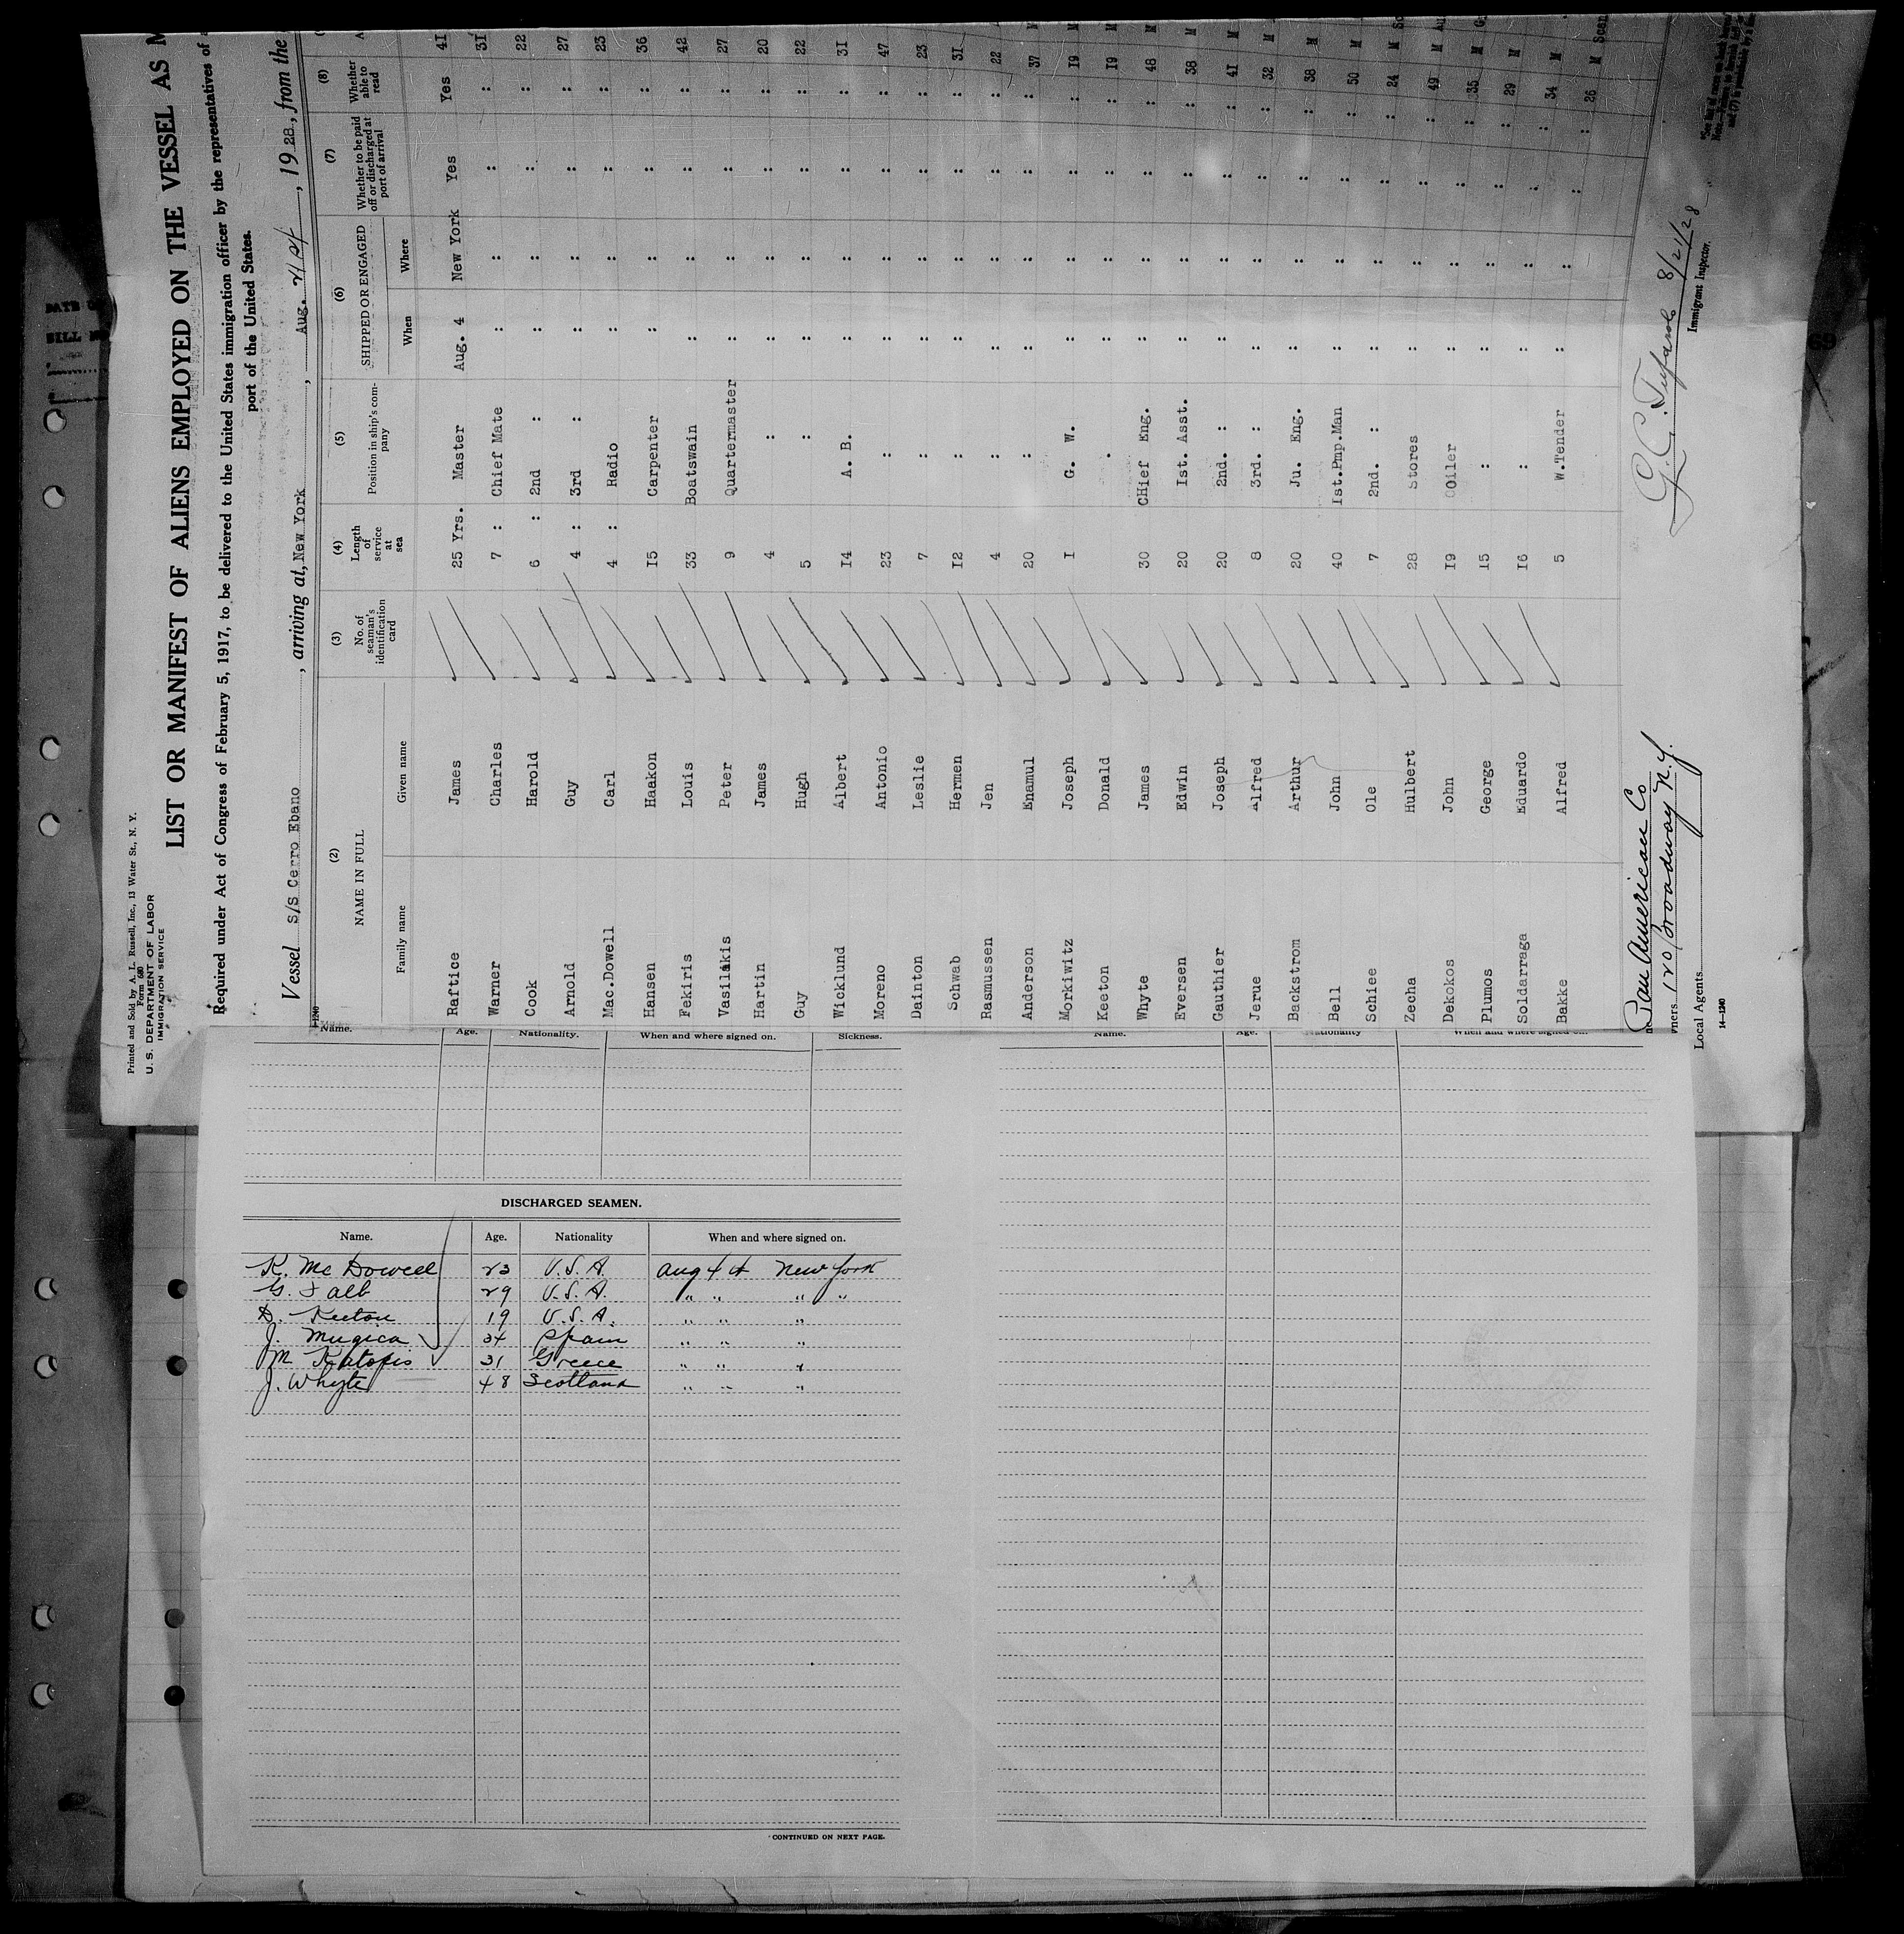 Printed and Sold by A. L. Russell, Inc., 13 Water St., N. Y.
Form 680
U. S. DEPARTMENT OF LABOR
IMMIGRATION SERVICE
LIST OR MANIFEST OF ALIENS EMPLOYED ON THE VESSEL AS M
Required under Act of Congress of February 5, 1917, to be delivered to the United States immigration officer by the representatives of a
port of the United States.
Vessel S/S Cerro Ebano, arriving at, New York, Aug. 21st, 1928, from the
(2) (3) (4) (5) (6) (7) (8)
NAME IN FULL No. of seaman's identification card Length of service at sea Position in ship's company SHIPPED OR ENGAGED Whether to be paid off or discharged at port of arrival Whether able to read
Family name Given name When Where
Raftice James 25 Yrs. Master Aug. 4 New York Yes Yes 41
Warner Charles 7 : Chief Mate : : : : 31
Cook Harold 6 : 2nd : : : : : 22
Arnold Guy 4 : 3rd : : : : : 27
Mac.Dowell Carl 4 : Radio : : : : 23
Hansen Haakon I5 Carpenter : : : : 36
Fekiris Louis 33 Boatswain : : : : 42
Vasilakis Peter 9 Quartermaster : : : : 27
Hartin James 4 : : : : : 20
Guy Hugh 5 : : : : : 22
Wicklund Albert I4 A. B. : : : : 3I
Moreno Antonio 23 : : : : : 47
Dainton Leslie 7 : : : : : 23
Schwab Hermen I2 : : : : : 3I
Rasmussen Jen 4 : : : : : 22
Anderson Enamul 20 : : : : : 37
Morkiwitz Joseph I G. W. : : : : I9 M
Keeton Donald . : : : : I9 M
Whyte James 30 CHief Eng. : : : : 48 M
Eversen Edwin 20 Ist. Asst. : : : : 38 M
Gauthier Joseph 20 2nd. : : : : : 41 M
Jerue Alfred 8 3rd. : : : : : 32 M
Backstrom Arthur 20 Ju. Eng. : : : : 38 M
Bell John 40 Ist.Pmp.Man : : : : 50 M
Schiee Ole 7 2nd. : : : : : 24 M Sc
Zecha Hulbert 28 Stores : : : : 49 M Au
Dekokos John I9 OOiler : : : : 35 M G
Plumos George I5 : : : : : 29 M
Soldarraga Eduardo I6 : : : : : 34 M
Bakke Alfred 5 W.Tender : : : : 26 M Scan
Pan American Co
120 Broadway N.Y.
Local Agents
14—1240
8/21/28
Immigrant Inspector.
Name. Age. Nationality. When and where signed on. Sickness.
DISCHARGED SEAMEN.
Name. Age. Nationality When and where signed on.
K. Mc Dowell 23 U.S.A. Aug 4th New York
G. Falb 29 U.S.A. " " " "
D. Keeton 19 U.S.A. " " "
J. Mugica 34 Spain " " "
M Katopis 31 Greece " " "
J. Whyte 48 Scotland " " "
CONTINUED ON NEXT PAGE.
Name. Age. Nationality When and where signed on.